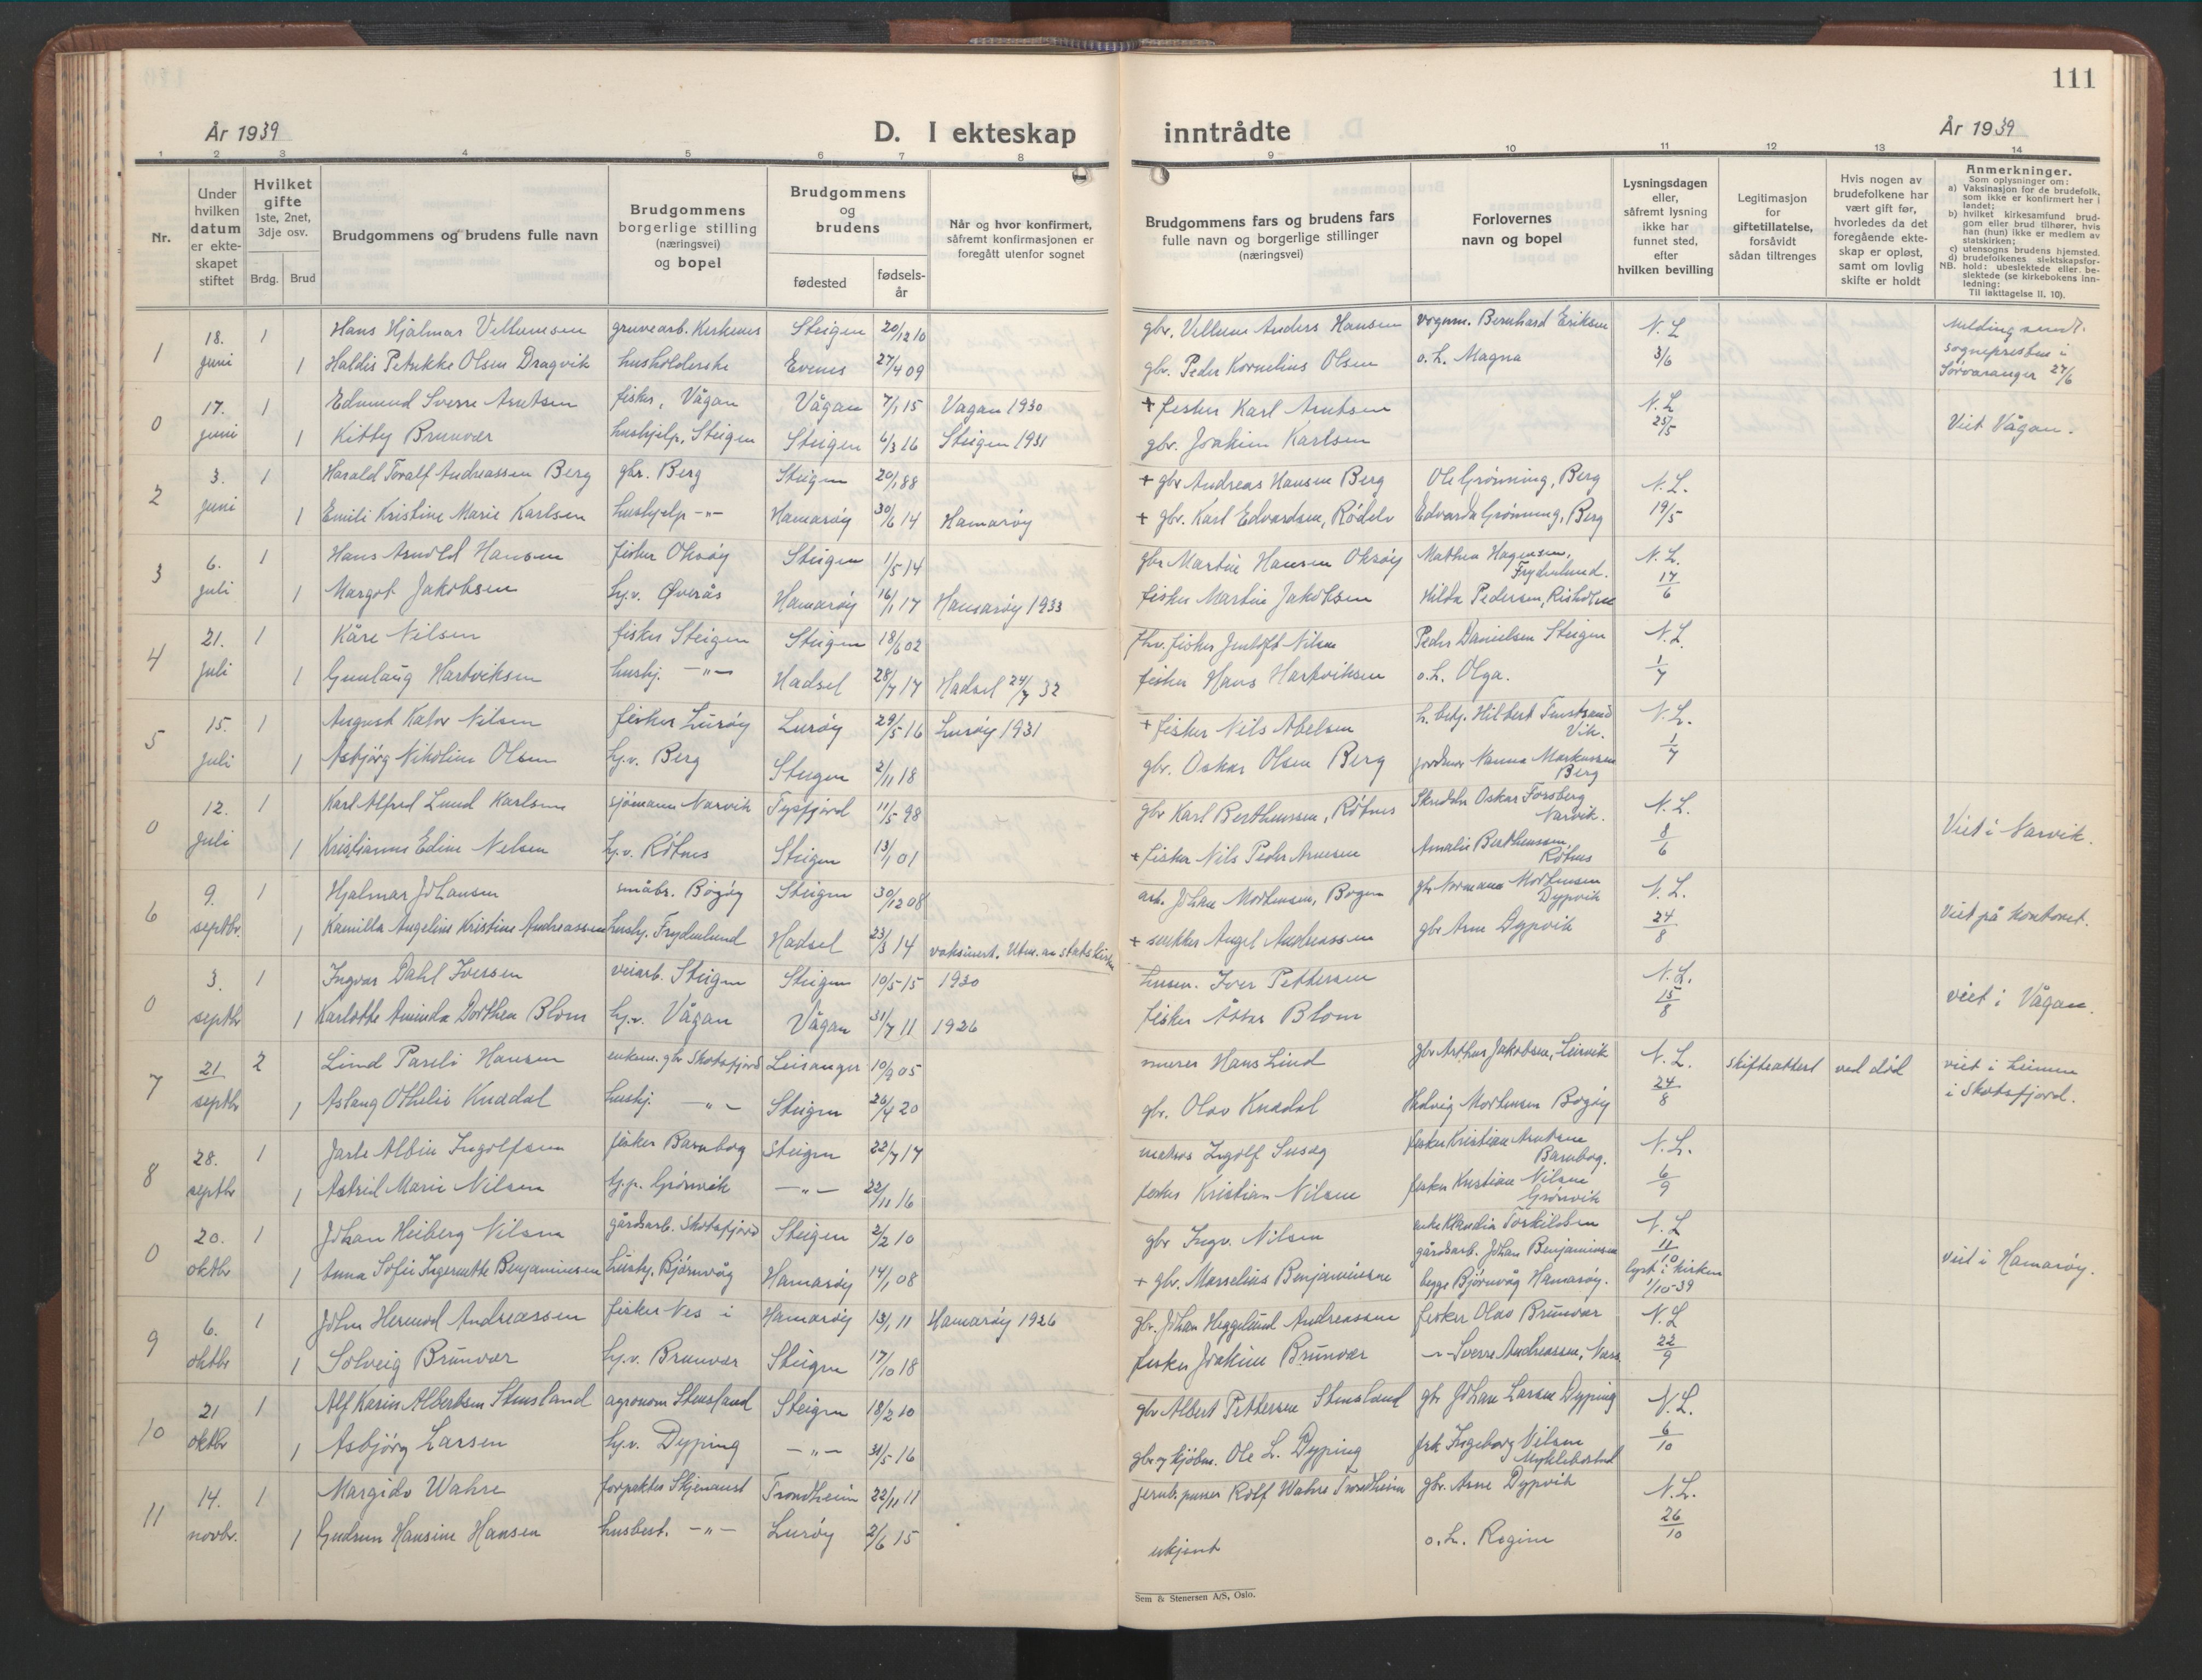 111
År 1939
D. I ekteskap
inntrådte
År 1939
1 2 3 4 5 6 7 8 9 10 11 12 13 14
Nr.
Under hvilken datum er ekte-skapet stiftet
Hvilket gifte 1ste, 2net, 3dje osv.
Brdg. Brud
Brudgommens og brudens fulle navn
Brudgommens borgerlige stilling (næringsvei) og bopel
Brudgommens og brudens
fødested
fødsels-år
Når og hvor konfirmert, såfremt konfirmasjonen er foregått utenfor sognet
Brudgommens fars og brudens fars fulle navn og borgerlige stillinger (næringsvei)
Forlovernes navn og bopel
Lysningsdagen eller, såfremt lysning ikke har funnet sted, efter hvilken bevilling
Legitimasjon for giftetillatelse, forsåvidt sådan tiltrenges
Hvis nogen av brudefolkene har vært gift før, hvorledes da det foregående ekte-skap er opløst, samt om lovlig skifte er holdt
Anmerkninger.
Som oplysninger om:
a) Vaksinasjon for de brudefolk, som ikke er konfirmert her i landet;
b) hvilket kirkesamfund brud-gom eller brud tilhører, hvis han (hun) ikke er medlem av statskirken;
c) utensogns brudens hjemsted.
d) brudefolkenes slektskapsfor-hold: ubeslektede eller be-slektede (se kirkebokens inn-ledning:
NB. Til iakttagelse II. 10).
1 18. juni 1 Hans Hjalmar Vellumsen gruvearb. Kirkenes Steigen 20/12 10 gbr. Vellum Anders Hansen vognm. Bernhard Eriksen N. L. 3/6 Melding sendt.
1 Haldis Petrikke Olsen Dragvik husholderske Evenes 27/4 09 gbr. Peder Kornelius Olsen o.h. Magna sogneprest i Sørvaranger 27/6
0 17. juni 1 Edmund Sverre Arntsen fisker, Vågan Vågan 7/1 15 Vagan 1930 + fisker Karl Arntsen N. L. 25/5 Viet Vågan.
1 Kitty Brunvær hushjelp, Steigen Steigen 6/3 16 Steigen 1931 gbr. Joakim Karlsen
2 3. juni 1 Harald Toralf Andreassen Berg gbr. Berg Steigen 20/1 88 + gbr Andreas Hansen Berg Ole Grønning, Berg N. L. 19/5
1 Emili Kristine Marie Karlsen hushjelp -"- Hamarøy 30/6 14 Hamarøy + gbr. Karl Edvardsen, Edvarda Grønning, Berg
3 6. juli 1 Hans Arnold Hansen fisker Oksøy Steigen 1/5 14 gbr Martin Hansen Oksøy Mathea Hagensen, Frydenlund. N. L. 17/6
1 Margot Jakobsen hj.v. Øverås Hamarøy 16/1 17 Hamarøy 1933 fisker Martin Jakobsen Hilda Pedersen,
4 21. juli 1 Kåre Nilsen fisker Steigen Steigen 18/6 02 fhv. fisker Nilsen Peder Danielsen Steigen N. L. 1/7
1 Gunlaug Hartviksen hushj. -"- Hadsel 28/7 17 Hadsel 24/7 32 fisker Hans Hartviksen o.h. Olga.
5 15. juli 1 August Kator Nilsen fisker Lurøy Lurøy 29/5 16 Lurøy 1931 + fisker Nils Abelsen h. betj. Hilbert Vik. N. L. 1/7
1 Asbjørg Nikoline Olsen hj.v. Berg Steigen 2/11 18 gbr. Oskar Olsen Berg jordmor Nanna Markussen Berg
0 12. juli 1 Karl Alfred Lund Karlsen sjømann Narvik Tysfjord 11/5 98 gbr Karl Berthenssen, Røtnes Skredder Oskar Forsberg Narvik. N. L. 8/6 Viet i Narvik.
1 Kristianne Edine Nelsen hj.v. Røtnes Steigen 13/1 01 + fisker Nils Peder Arnesen Amalie Berthenssen Røtnes
6 9. septbr. 1 Hjalmar Johansen småbr. Bogøy Steigen 30/12 08 arb. Johan Mortensen, Bogen gbr Normann Mortensen Dypvik N. L. 24/8 Viet på kontoret.
1 Kamilla Angeline Kristine Andreassen hushj. Frydenlund Hadsel 23/3 14 vaksinert. Utm. av statskirken + snekker Angel Andreassen gbr Arne Dypvik
0 3. septbr 1 Ingvar Dahl Iversen veiarb. Steigen Steigen 10/5 15 1930 husm. Iver Pettersen N. L. 15/8 viet i Vågan.
1 Karlotte Aminda Dorthea Blom hj.v. Vågan Vågan 31/7 11 1926 fisker Blom
7 21 septbr 2 Lind Pareli Hansen enkem. gbr Skotsfjord Leisanger 10/9 05 murer Hans Lind gbr Arthur Jakobsen, Leirvik N. L. 24/8 skifteattest ved død viet i heimen i Skotsfjord.
1 Aslaug Othelie Knædal hushj. -"- Steigen 20/4 20 gbr. Olav Knædal Hedvig Mortensen Bogøy
8 28. septbr 1 Jarle Albin Ingolfsen fisker Barnbog Steigen 22/7 17 matros Ingolf fisker Kristian Arntsen Barnbog. N. L. 6/9
1 Astrid Marie Nilsen hj.p. Grønvik -"- 22/11 16 fisker Kristian Nilsen fisker Kristian Nilsen Grønvik
0 20. oktbr 1 Johan Heiberg Nilsen gårdsarb. Skotsfjord Steigen 2/2 10 gbr Ingv. Nilsen enke Klaudia Torkildsen N. L. 11/10 viet i Hamarøy.
1 Anna Sofie Ingernette Benjaminsen hushj. Bjørnvåg Hamarøy 14/1 08 + gbr. Marselius Benjaminsen gårdsarb. Johan Benjaminsen begge Bjørnvåg Hamarøy. lyst i kirken 1/10-39
9 6. oktbr 1 John Hermod Andreassen fisker Nes i Hamarøy 13/1 11 Hamarøy 1926 gbr. Johan Heggelund Andreassen fisker Olav Brunvær N. L. 22/9
1 Solveig Brunvær hj.v. Brunvær Steigen 17/10 18 fisker Joakim Brunvær -"- Sverre Andreassen,
10 21 oktbr 1 Alf Karin Albertsen Stensland agronom Stensland Steigen 18/2 10 gbr Albert Pettersen Stensland gbr Johan Larsen Dyping N. L. 6/10
1 Asbjørg Larsen hj.v. Dyping -"- 31/5 16 gbr og kjøbm. Ole L. Dyping frk Ingeborg Nilsen Myklebostad
11 14. novbr. 1 Margido Wahre forpakter Skjenanset Trondheim 22/11 11 jernb. pusser Rolf Wahre Trondheim gbr. Arne Dypvik N. L. 26/10
1 Gudrun Hansine Hansen husbest. -"- Lurøy 2/6 15 ukjent o.h. Regine
Sem & Stenersen A/S, Oslo.